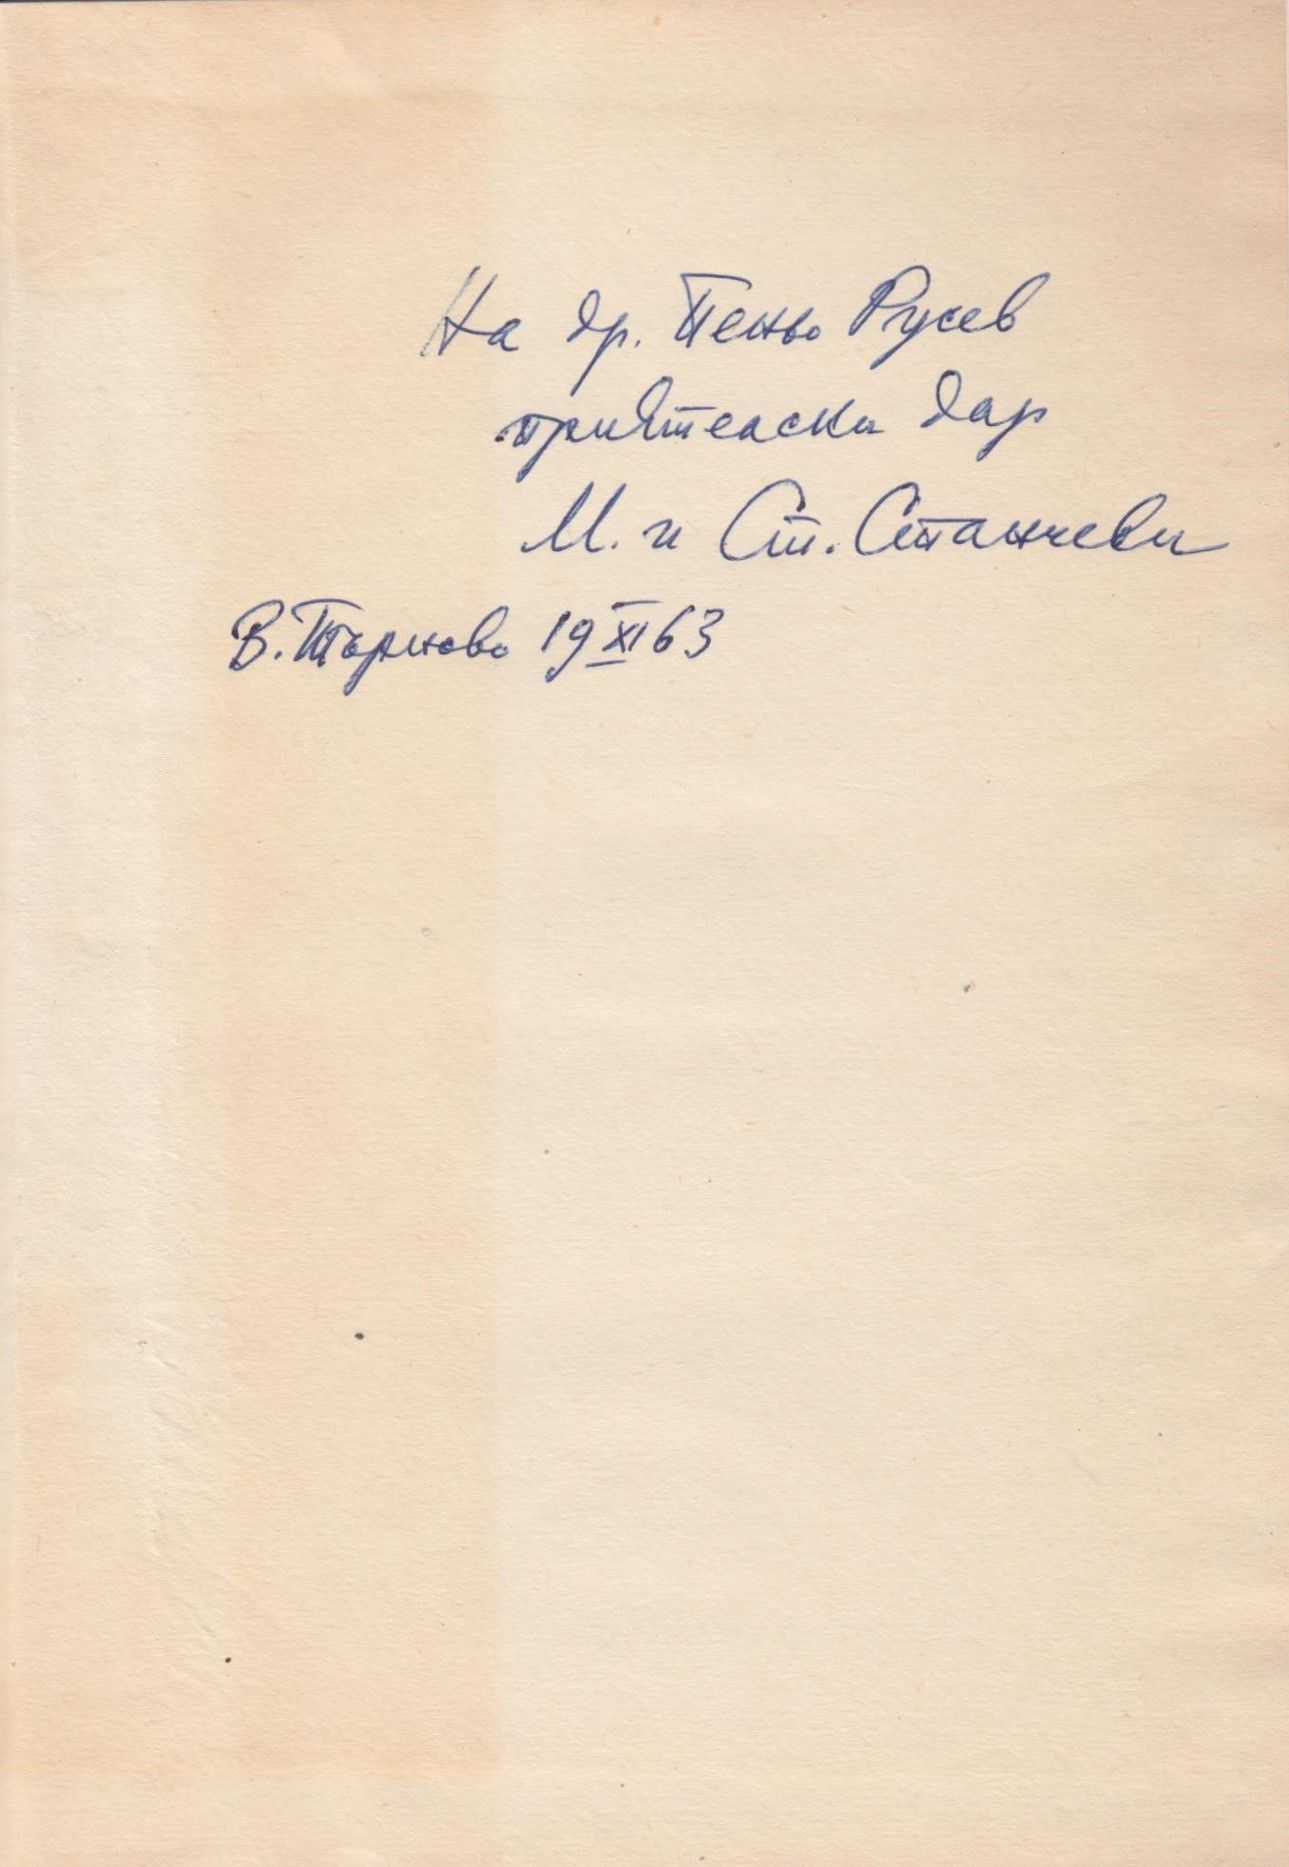 На др. Пеньо Русев
приятелски дар
М. и Ст. Станчеви
В. Търново 19 XI 63